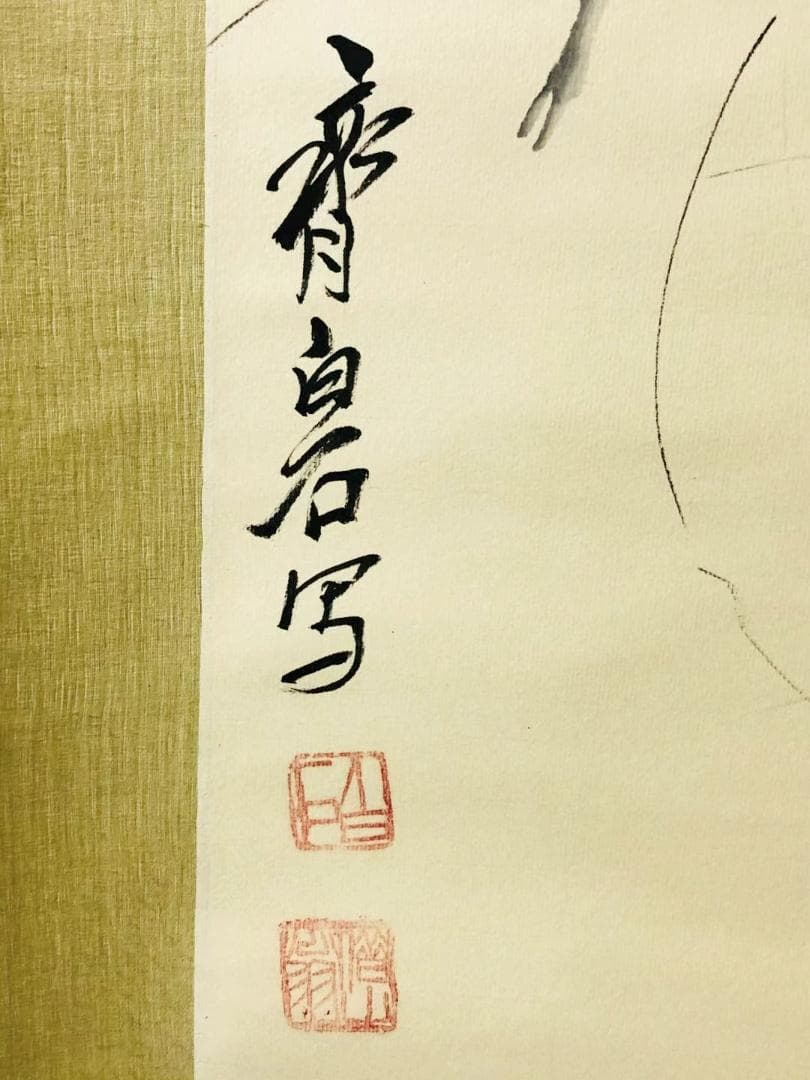 齊白石写
白石